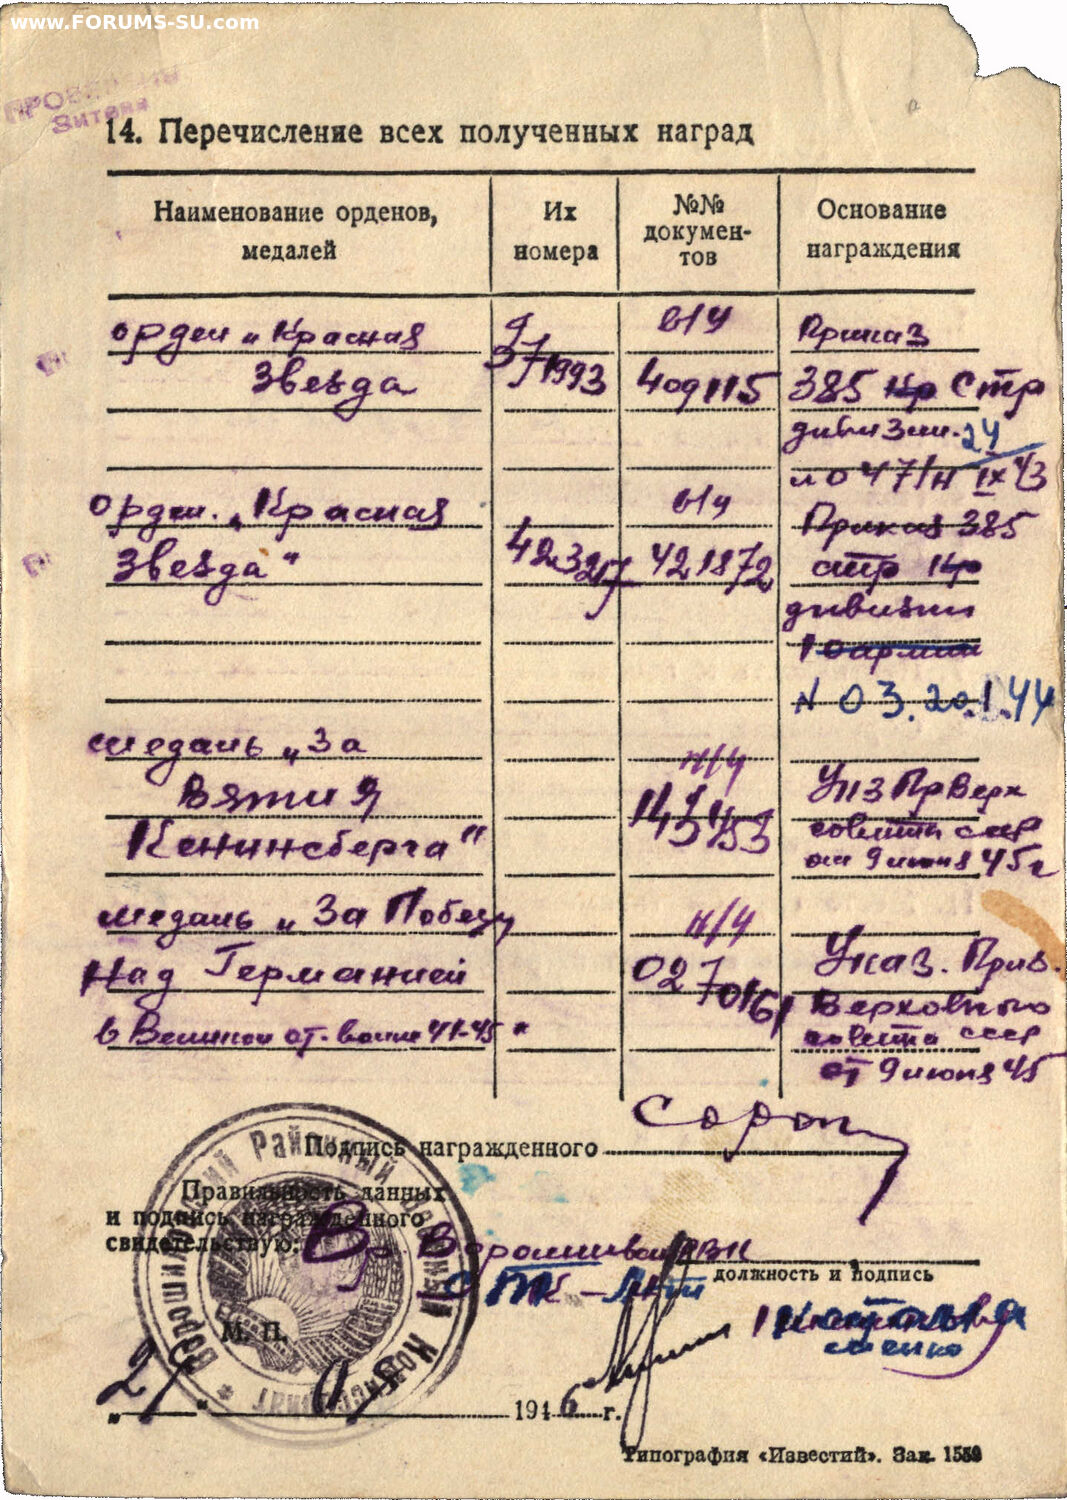 www.FORUMS-SU.com
14. Перечисление всех полученных наград
Наименование орденов, медалей
Их номера
№№ докумен-тов
Основание награждения
орден „Красная
Звезда
в/у
409115
Приказ
385 кр Стр
дивизии. 24
но 47/н IX 43
орден. „Красная
Звезда"
в/у
421872
Приказ 385
стр кр
дивизии
10 армии
N 03. 20.1.44
медаль „За
взятия
Кенинсберга"
н/у
Указ Пр Верх
совета ссср
от 9 июня 45 г
медаль „За Победу
Над Германией
в Великой от. войне 41-45"
н/у
027016
Указ. През.
Верховного
совета ссср
от 9 июня 45
Подпись награжденного
Правильность данных
и подпись награжденного
свидетельствую:
Вр Ворошиловск РВК
должность и подпись
М. П.
1946 г.
Ворошиловский Районный Военный Комиссариат
Типография «Известий». Зак. 1559